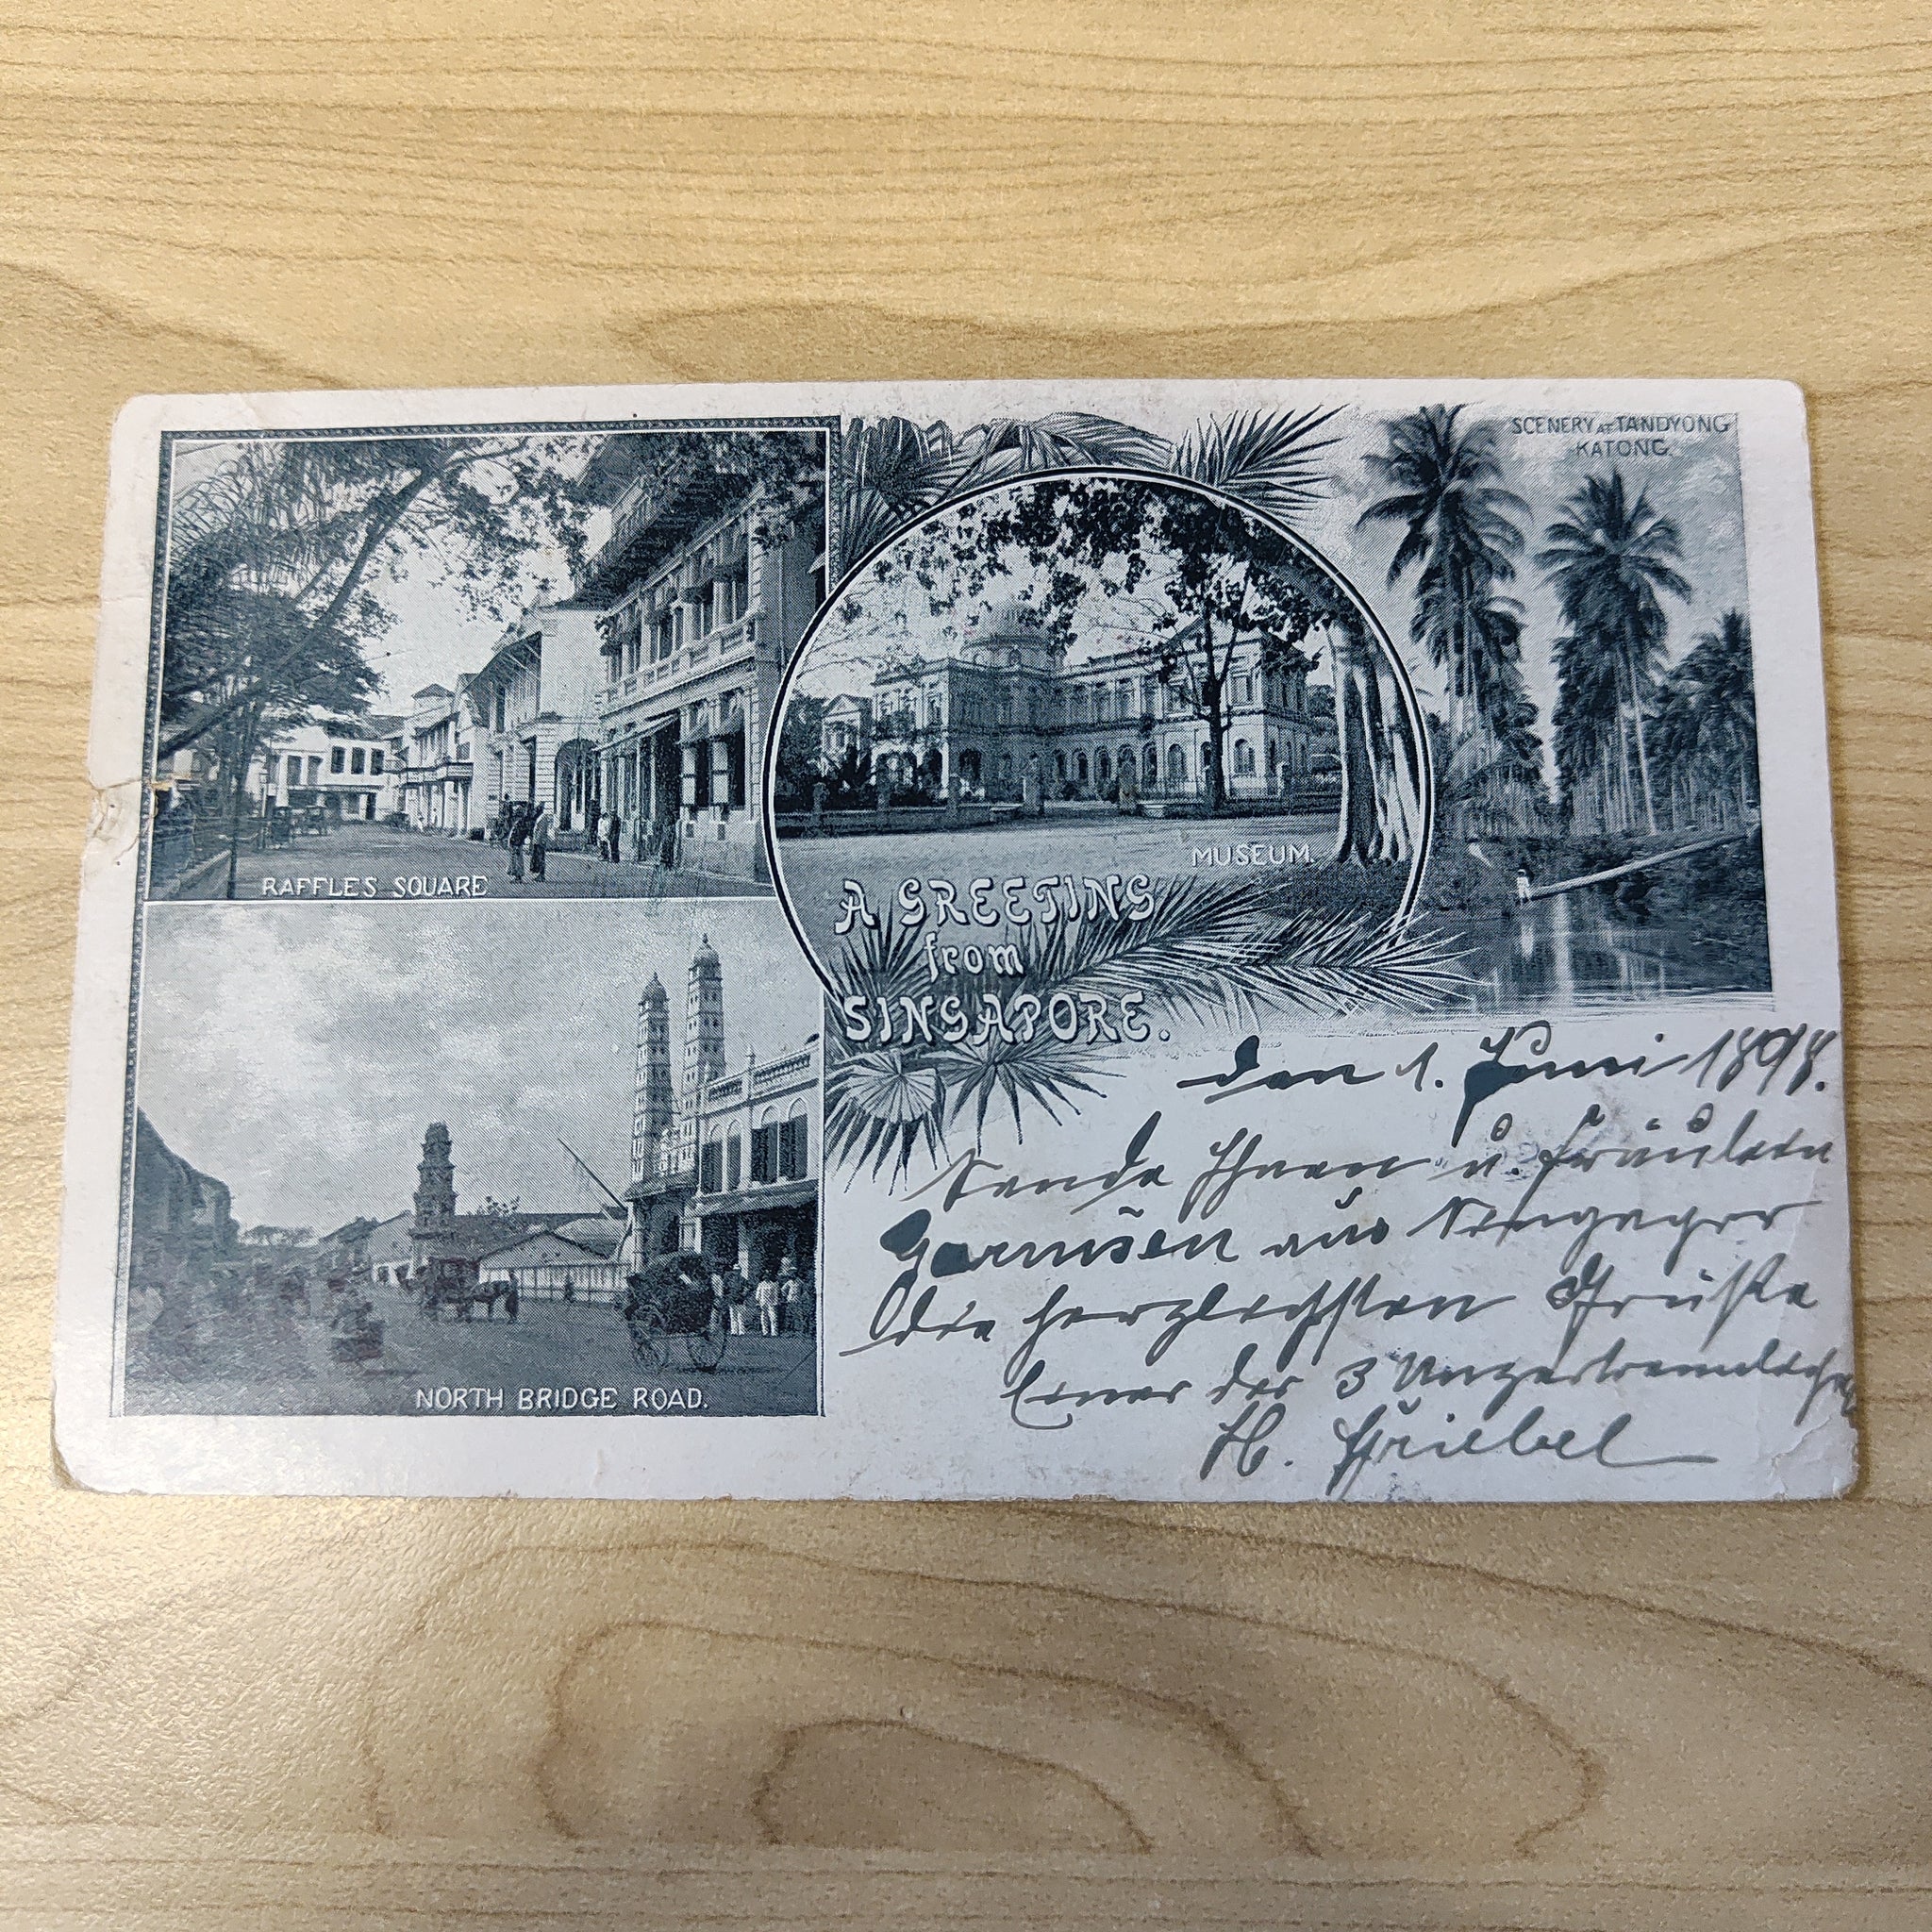 SCENERY AT TANDYONG
KATONG
RAFFLES SQUARE
MUSEUM.
A GREETING
from
SINGAPORE.
NORTH BRIDGE ROAD.
den 1. Juni 1898.
Sende Ihnen u. Fräulein
aus
die herzlichsten Grüße
Einer der 3 Unzertrennlichen
H. Griebel